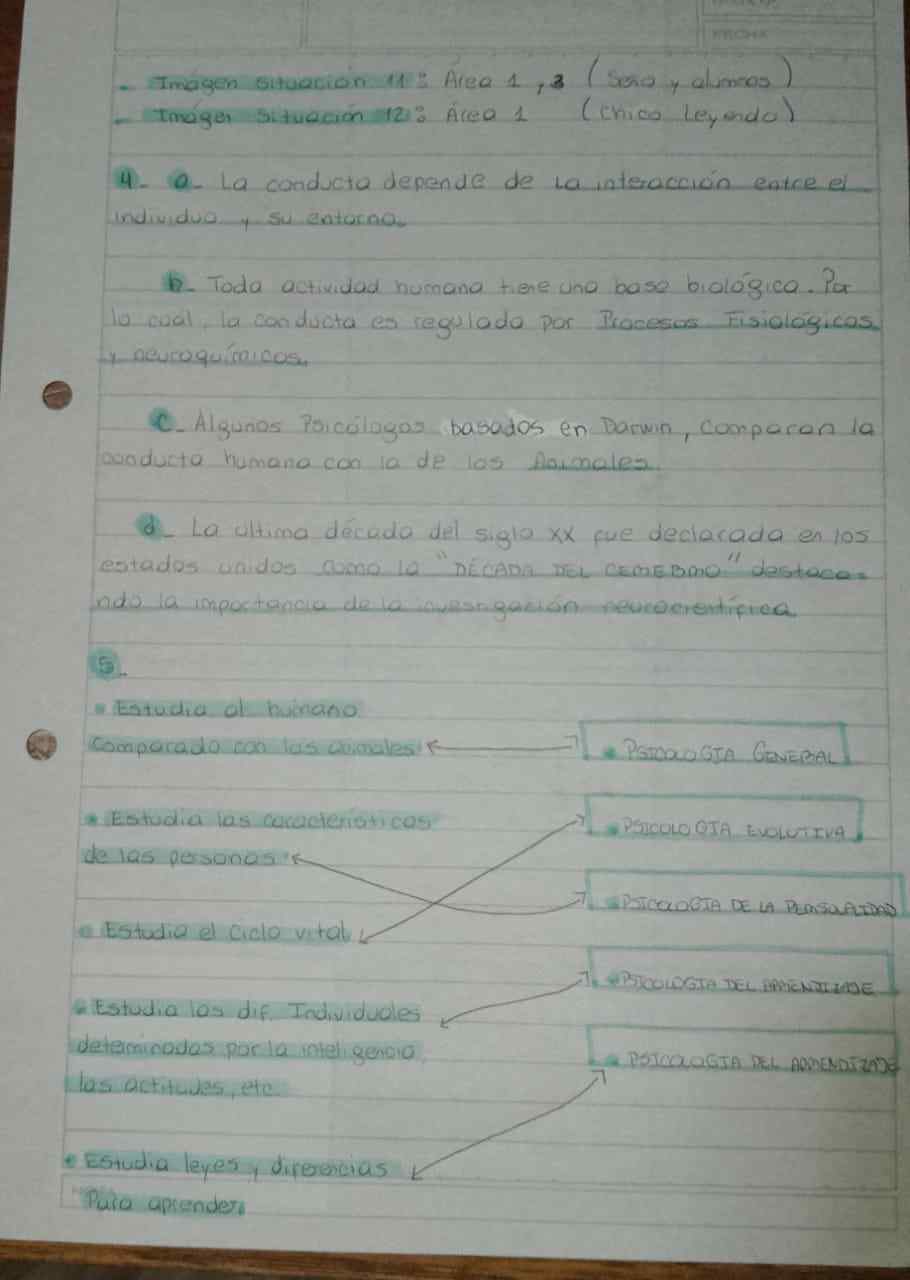 FECHA
- Imágen situación 11: Área 1, 3 (Seño y alumnos)
- Imágen situación 12: Área 1 (Chico Leyendo)
4- a- La conducta depende de la interacción entre el
individuo y su entorno.
b- Toda actividad humana tiene una base biológica. Por
lo cuál, la conducta es regulada por Procesos Fisiológicos
y neuroquímicos.
c- Algunos Psicólogos basados en Darwin, comparan la
conducta humana con la de los Animales.
d- La última década del siglo XX fue declarada en los
estados unidos como la "DÉCADA DEL CEREBRO" destaca-
ndo la importancia de la investigación neurocientífica
5-
• Estudia al humano
comparado con los animales
• PSICOLOGIA GENERAL
• Estudia las características
• PSICOLOGIA EVOLUTIVA
de las personas
• PSICOLOGIA DE LA PERSONALIDAD
• Estudia el ciclo vital
• PSICOLOGIA DEL APRENDIZAJE
• Estudia las dif. Individuales
determinadas por la inteligencia,
• PSICOLOGIA DEL APRENDIZAJE
las actitudes, etc.
• Estudia leyes y diferencias
Para aprender.